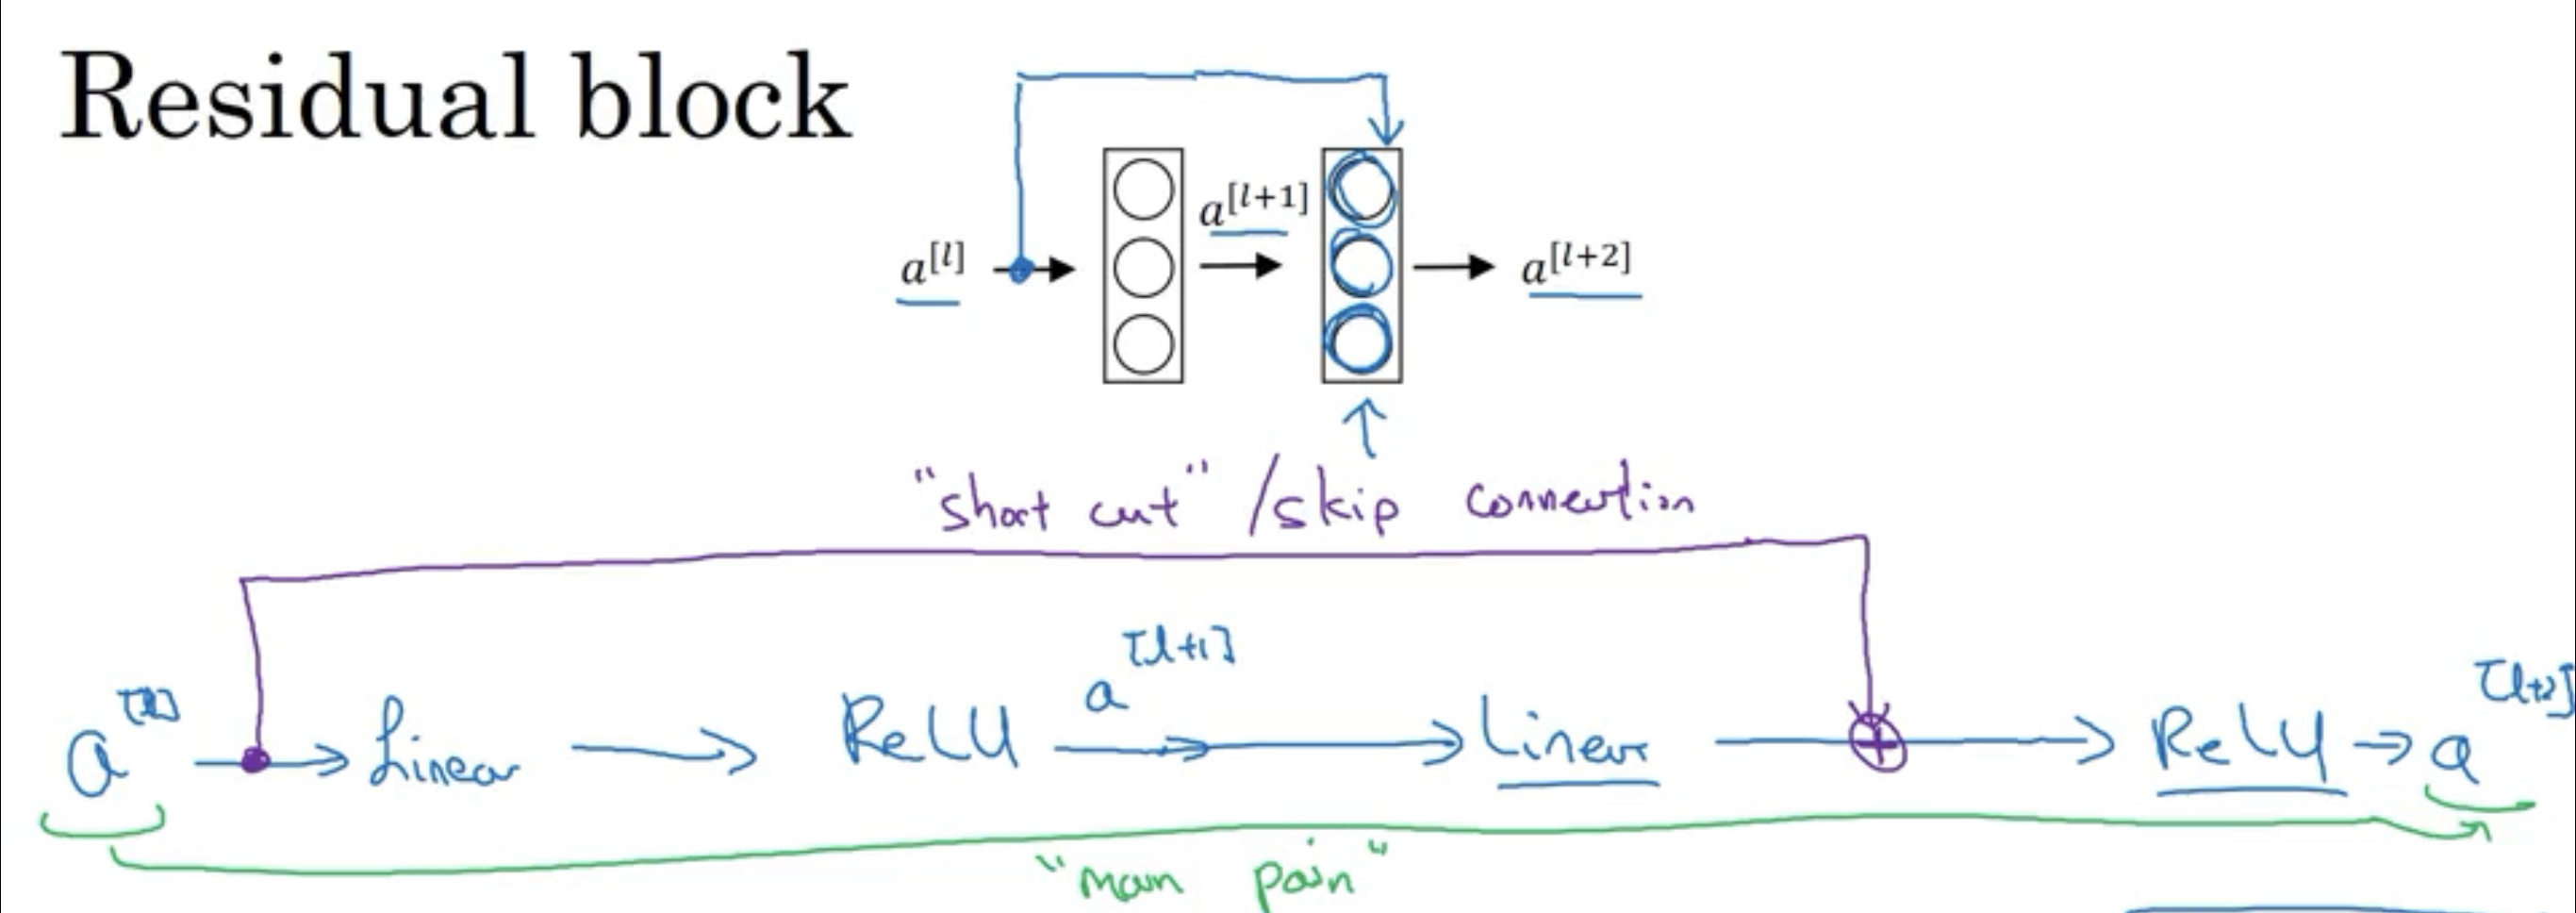 Residual block
a^[l] a^[l+1] a^[l+2]
"short cut" / skip connection
a^[l] → Linear → ReLU a^[l+1] → Linear ⊕ → ReLU → a^[l+2]
"main